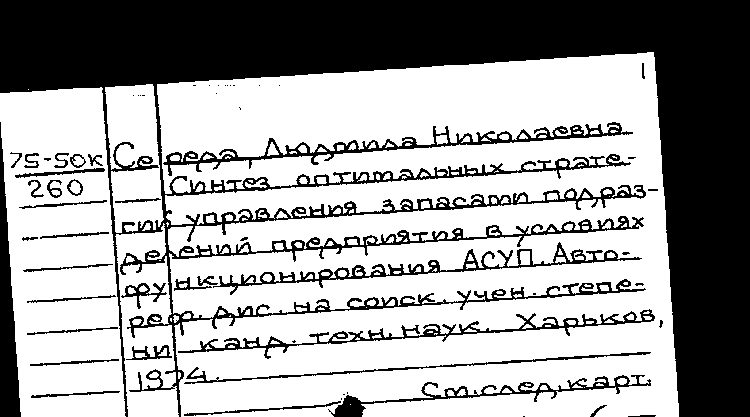 1
75-50к Середа, Людмила Николаевна
260 Синтез оптимальных страте-
гий управления запасами подраз-
делений предприятия в условиях
функционирования АСУП. Авто-
реф. дис. на соиск. учен. степе-
ни канд. техн. наук. Харьков,
1974.
См. след. карт.